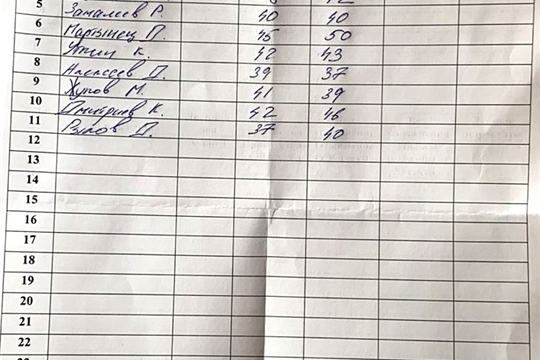 5 Замалеев Р. 40 40
6 Мартынец П. 45 50
7 Утин К. 42 43
8 Алексеев Д. 39 37
9 Жуков М. 41 39
10 Дмитриев К. 42 46
11 Рыков Д. 37 40
12
13
14
15
16
17
18
19
20
21
22